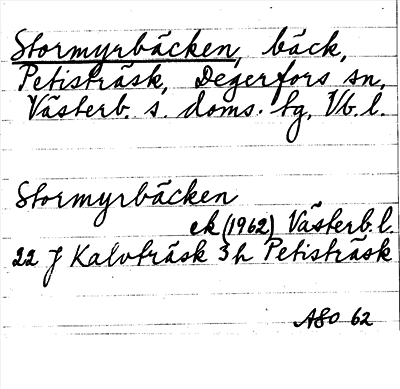 Stormyrbäcken, bäck,
Petisträsk, Degerfors sn,
Västerb. s. doms. tg, Vb. l.
Stormyrbäcken
ek (1962) Västerb. l.
22 J Kalvträsk 3h Petisträsk
ASO 62